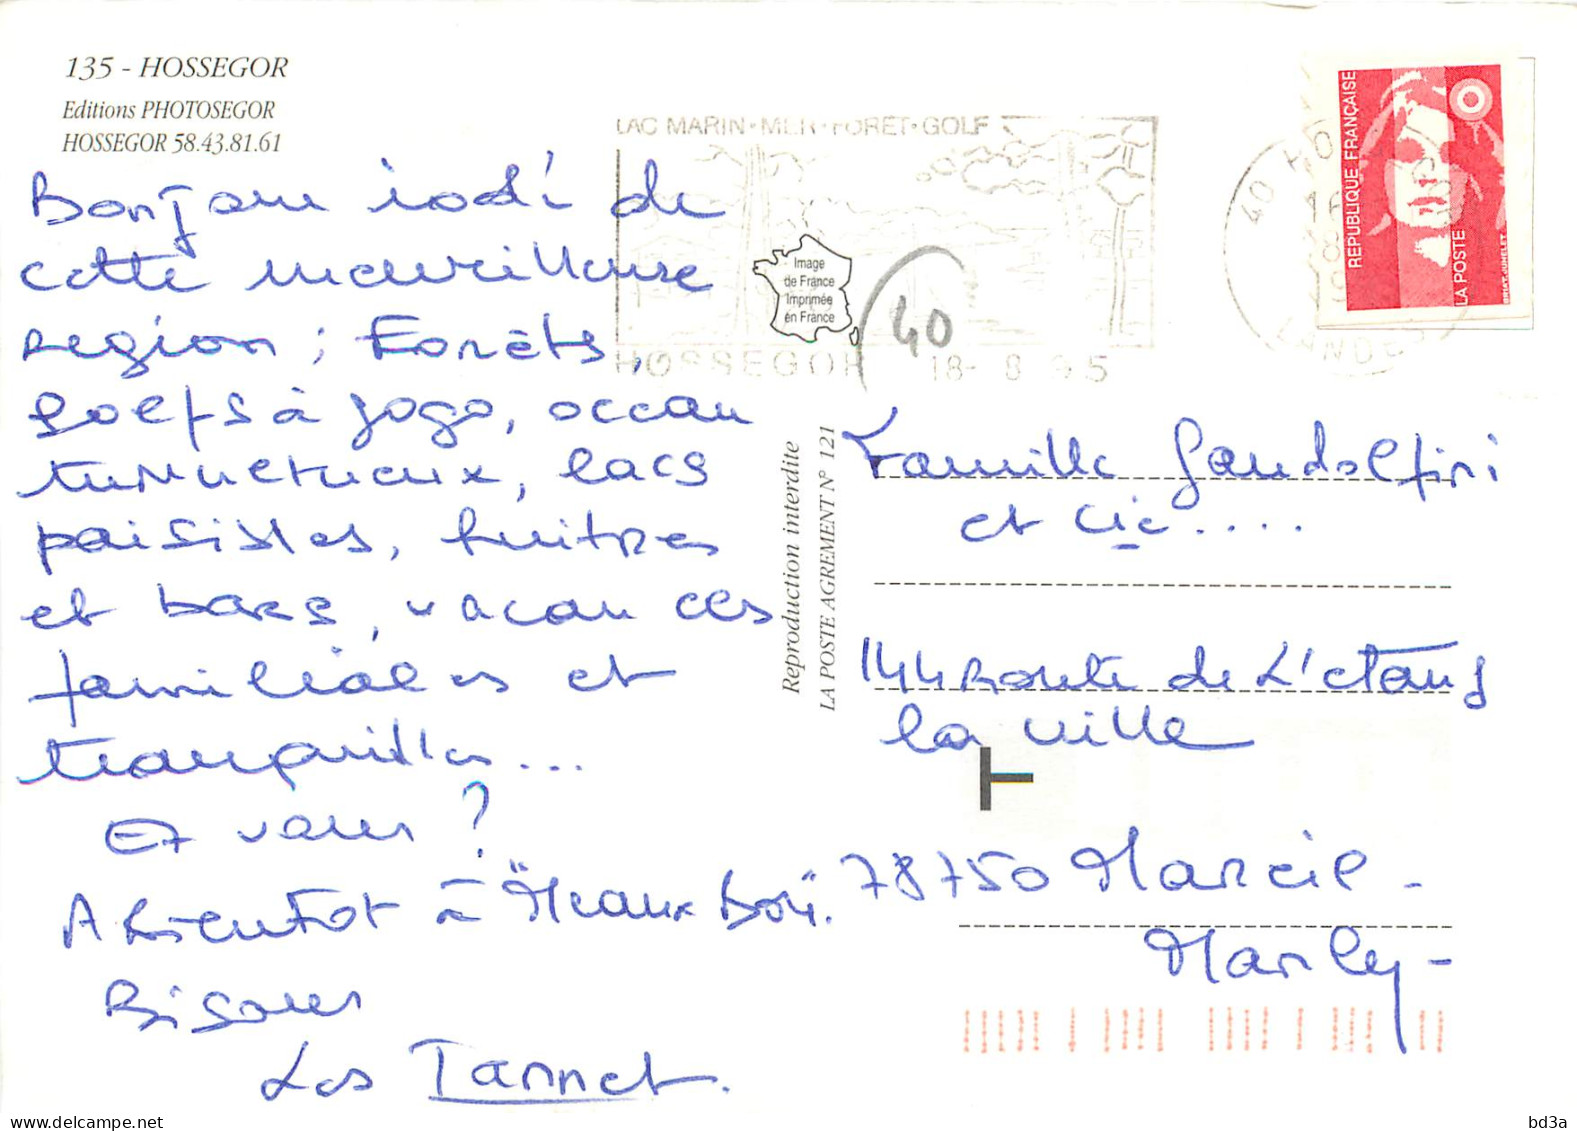 135 - HOSSEGOR
Editions PHOTOSEGOR
HOSSEGOR 58.43.81.61
LAC MARIN·MER·FORET·GOLF
HOSSEGOR 18- 8 95
Image
de France
Imprimée
en France
40
REPUBLIQUE FRANÇAISE
LA POSTE
40 HO
LANDES
Bonjour iodé de
cette merveilleuse
region ; Forêts,
golfs à gogo, océan
tumultueux, lacs
paisibles, huitres
et bars, vacances
familiales et
tranquilles...
Et vous ?
A Bientôt à "Meaux Boy".
Bisous
Les Tannet.
Reproduction interdite
LA POSTE AGREMENT N° 121
Famille Gandolfini
et Cie....
144 Route de L'etang
la ville
78750 Mareil-
Marly-
www.delcampe.net
bd3a